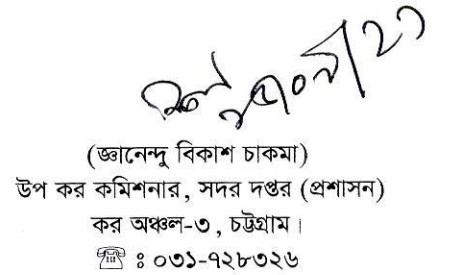 (জ্ঞানেন্দু বিকাশ চাকমা)
উপ কর কমিশনার, সদর দপ্তর (প্রশাসন)
কর অঞ্চল-৩, চট্টগ্রাম।
☏ : ০৩১-৭২৮৩২৬